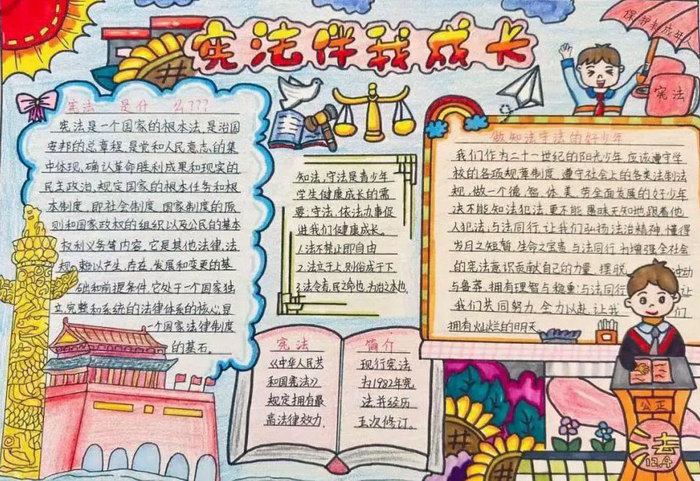 宪法伴我成长
宪法 是什么???
宪法是一个国家的根本法,是治国
安邦的总章程,是党和人民意志的集
中体现,确认革命胜利成果和现实的
民主政治,规定国家的根本任务和根
本制度,即社会制度、国家制度的原
则和国家政权的组织以及公民的基本
权利义务等内容,它是其他法律、法
规 产生、存在、发展和变更的基
础和前提条件,它处于一个国家独
立、完整和系统的法律体系的核心,是
一个国家法律制度
的基石。
知法,守法是青少年
学生健康成长的需
要;守法、依法办事促
进我们健康成长。
1.法不禁止即自由
2.法立于上,则俗成于下
3.法令者,民之命也,为治之本也.
宪法
《中华人民共
和国宪法》
规定拥有最
高法律效力.
简介
现行宪法
为1982年宪
法,并经历
五次修订。
保护我成长
宪法
做知法守法的好少年
我们作为二十一世纪的阳光少年,应该遵守学
校的各项规章制度,遵守社会上的各类法制法
规,做一个德、智、体、美、劳全面发展的好少年
决不能知法犯法,更不能愚昧无知地跟着他
人犯法,与法同行,让我们弘扬法治精神,懂得
岁月之短暂,生命之宝贵,与法同行,为增强全社会
的宪法意识贡献自己的力量,摆脱
与鲁莽,拥有理智与稳重;与法同行
我们共同努力,全力以赴,让我 们
拥有灿烂的明天
公正
法
12.4